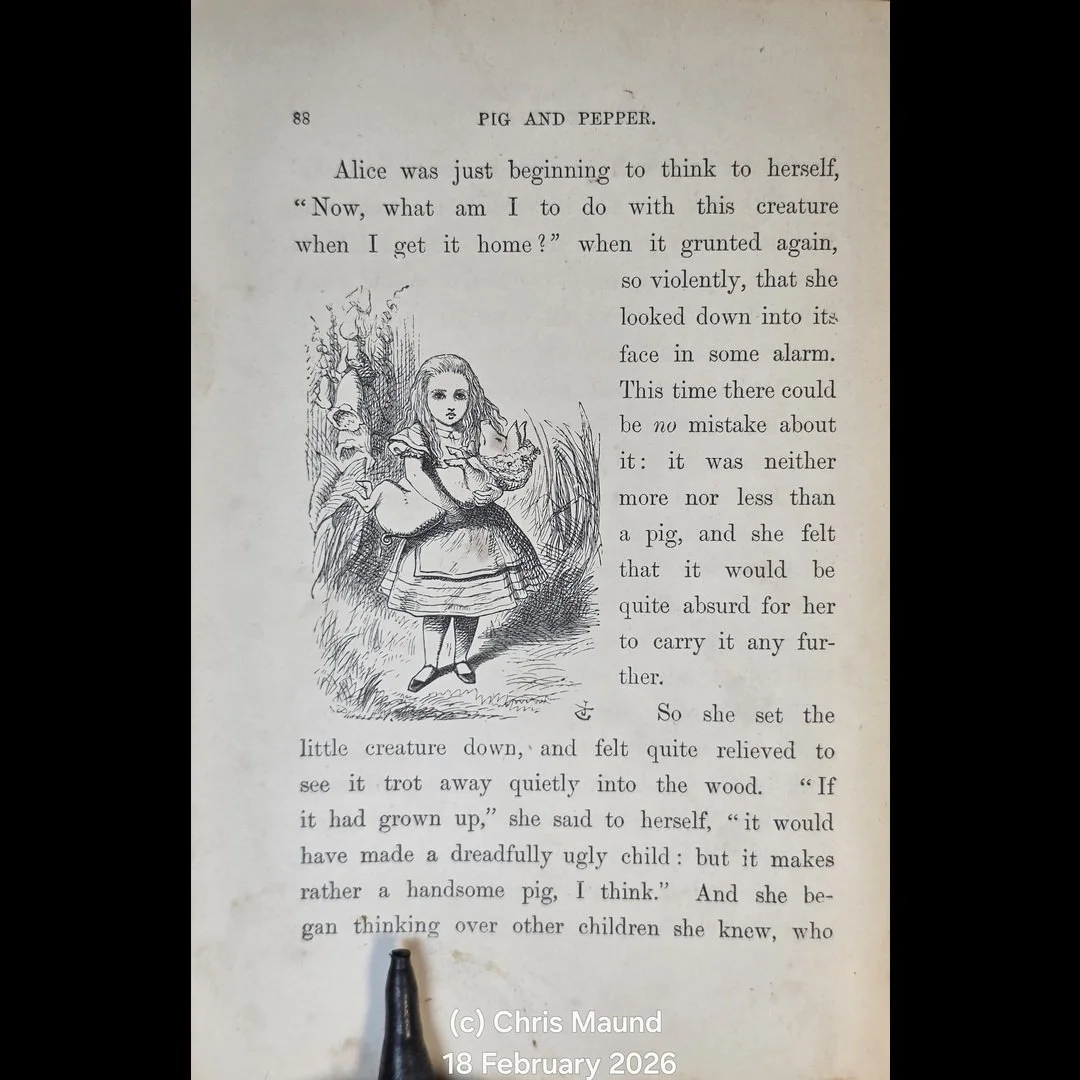 88 PIG AND PEPPER.
Alice was just beginning to think to herself,
“Now, what am I to do with this creature
when I get it home?” when it grunted again,
so violently, that she
looked down into its
face in some alarm.
This time there could
be no mistake about
it: it was neither
more nor less than
a pig, and she felt
that it would be
quite absurd for her
to carry it any fur-
ther.
So she set the
little creature down, and felt quite relieved to
see it trot away quietly into the wood. “If
it had grown up,” she said to herself, “it would
have made a dreadfully ugly child: but it makes
rather a handsome pig, I think.” And she be-
gan thinking over other children she knew, who
(c) Chris Maund
18 February 2026